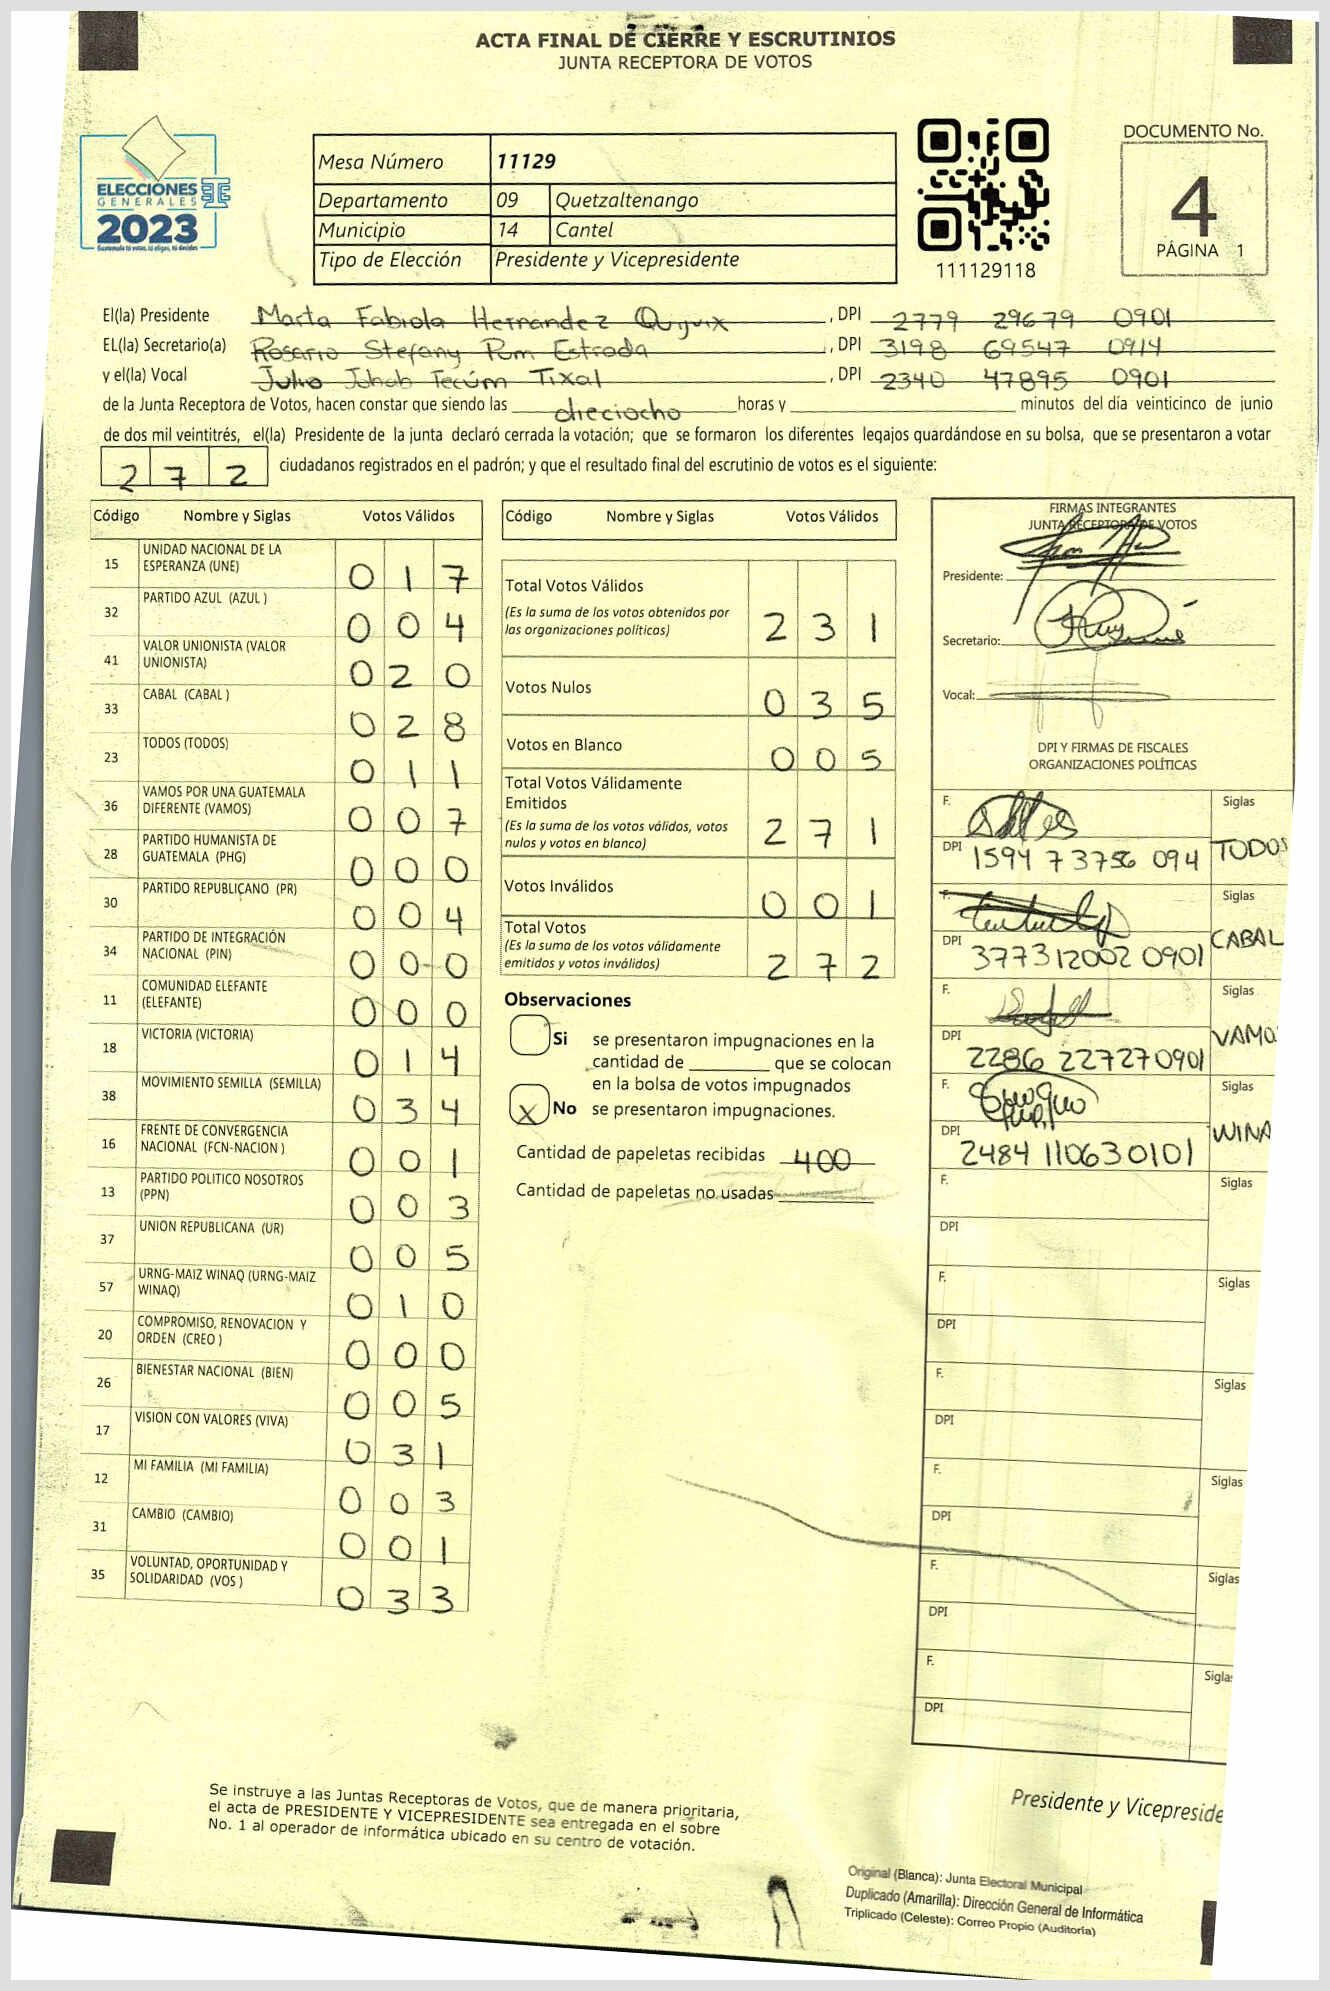 ACTA FINAL DE CIERRE Y ESCRUTINIOS
JUNTA RECEPTORA DE VOTOS
ELECCIONES
GENERALES
2023
Guatemala tú votas, tú eliges, tú decides
Mesa Número 11129
Departamento 09 Quetzaltenango
Municipio 14 Cantel
Tipo de Elección Presidente y Vicepresidente
111129118
DOCUMENTO No.
4
PÁGINA 1
El(la) Presidente Marta Fabiola Hernández Quyix, DPI 2779 29679 0901
EL(la) Secretario(a) Rosario Stefany Pum Estrada, DPI 3198 69547 0914
y el(la) Vocal Julio Tecúm Tixal, DPI 2340 47895 0901
de la Junta Receptora de Votos, hacen constar que siendo las dieciocho horas y minutos del día veinticinco de junio
de dos mil veintitrés, el(la) Presidente de la junta declaró cerrada la votación; que se formaron los diferentes legajos guardándose en su bolsa, que se presentaron a votar
272 ciudadanos registrados en el padrón; y que el resultado final del escrutinio de votos es el siguiente:
Código Nombre y Siglas Votos Válidos
15 UNIDAD NACIONAL DE LA ESPERANZA (UNE) 017
32 PARTIDO AZUL (AZUL ) 004
41 VALOR UNIONISTA (VALOR UNIONISTA) 020
33 CABAL (CABAL ) 028
23 TODOS (TODOS) 011
36 VAMOS POR UNA GUATEMALA DIFERENTE (VAMOS) 007
28 PARTIDO HUMANISTA DE GUATEMALA (PHG) 000
30 PARTIDO REPUBLICANO (PR) 004
34 PARTIDO DE INTEGRACIÓN NACIONAL (PIN) 000
11 COMUNIDAD ELEFANTE (ELEFANTE) 000
18 VICTORIA (VICTORIA) 014
38 MOVIMIENTO SEMILLA (SEMILLA) 034
16 FRENTE DE CONVERGENCIA NACIONAL (FCN-NACION ) 001
13 PARTIDO POLITICO NOSOTROS (PPN) 003
37 UNION REPUBLICANA (UR) 005
57 URNG-MAIZ WINAQ (URNG-MAIZ WINAQ) 010
20 COMPROMISO, RENOVACION Y ORDEN (CREO ) 000
26 BIENESTAR NACIONAL (BIEN) 005
17 VISION CON VALORES (VIVA) 031
12 MI FAMILIA (MI FAMILIA) 003
31 CAMBIO (CAMBIO) 001
35 VOLUNTAD, OPORTUNIDAD Y SOLIDARIDAD (VOS ) 033
Código Nombre y Siglas Votos Válidos
Total Votos Válidos 231
(Es la suma de los votos obtenidos por
las organizaciones políticas)
Votos Nulos 035
Votos en Blanco 005
Total Votos Válidamente
Emitidos 271
(Es la suma de los votos válidos, votos
nulos y votos en blanco)
Votos Inválidos 001
Total Votos 272
(Es la suma de los votos válidamente
emitidos y votos inválidos)
Observaciones
Si se presentaron impugnaciones en la
cantidad de que se colocan
en la bolsa de votos impugnados
X No se presentaron impugnaciones.
Cantidad de papeletas recibidas 400
Cantidad de papeletas no usadas
FIRMAS INTEGRANTES
JUNTA RECEPTORA DE VOTOS
Presidente:
Secretario:
Vocal:
DPI Y FIRMAS DE FISCALES
ORGANIZACIONES POLÍTICAS
F. Siglas
DPI 1594 73756 094 TODOS
F. Siglas
DPI 377312002 0901 CABAL
F. Siglas
DPI 2286 22727 0901 VAMO
F. Siglas
DPI 2484 11063 0101 WINA
F. Siglas
DPI
F. Siglas
DPI
F. Siglas
DPI
F. Siglas
DPI
F. Siglas
DPI
F. Sigla
DPI
Se instruye a las Juntas Receptoras de Votos, que de manera prioritaria,
el acta de PRESIDENTE Y VICEPRESIDENTE sea entregada en el sobre
No. 1 al operador de informática ubicado en su centro de votación.
Presidente y Vicepreside
Original (Blanca): Junta Electoral Municipal
Duplicado (Amarilla): Dirección General de Informática
Triplicado (Celeste): Correo Propio (Auditoría)